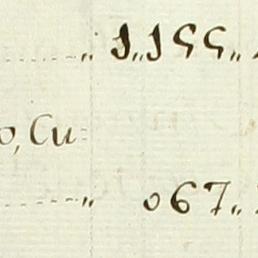 „ 1„155„
o, Cu=
„ 067„